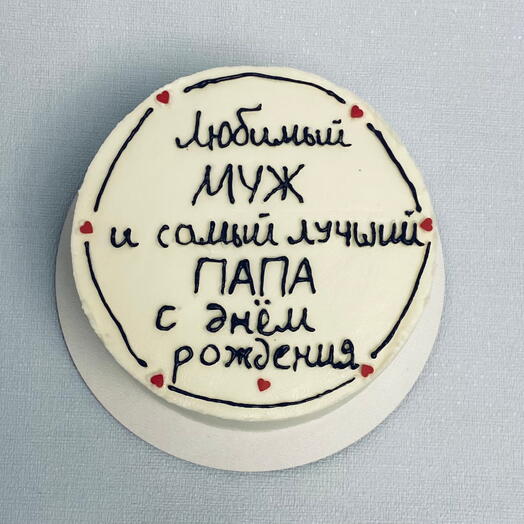 Любимый
МУЖ
и самый лучший
ПАПА
с днём
рождения